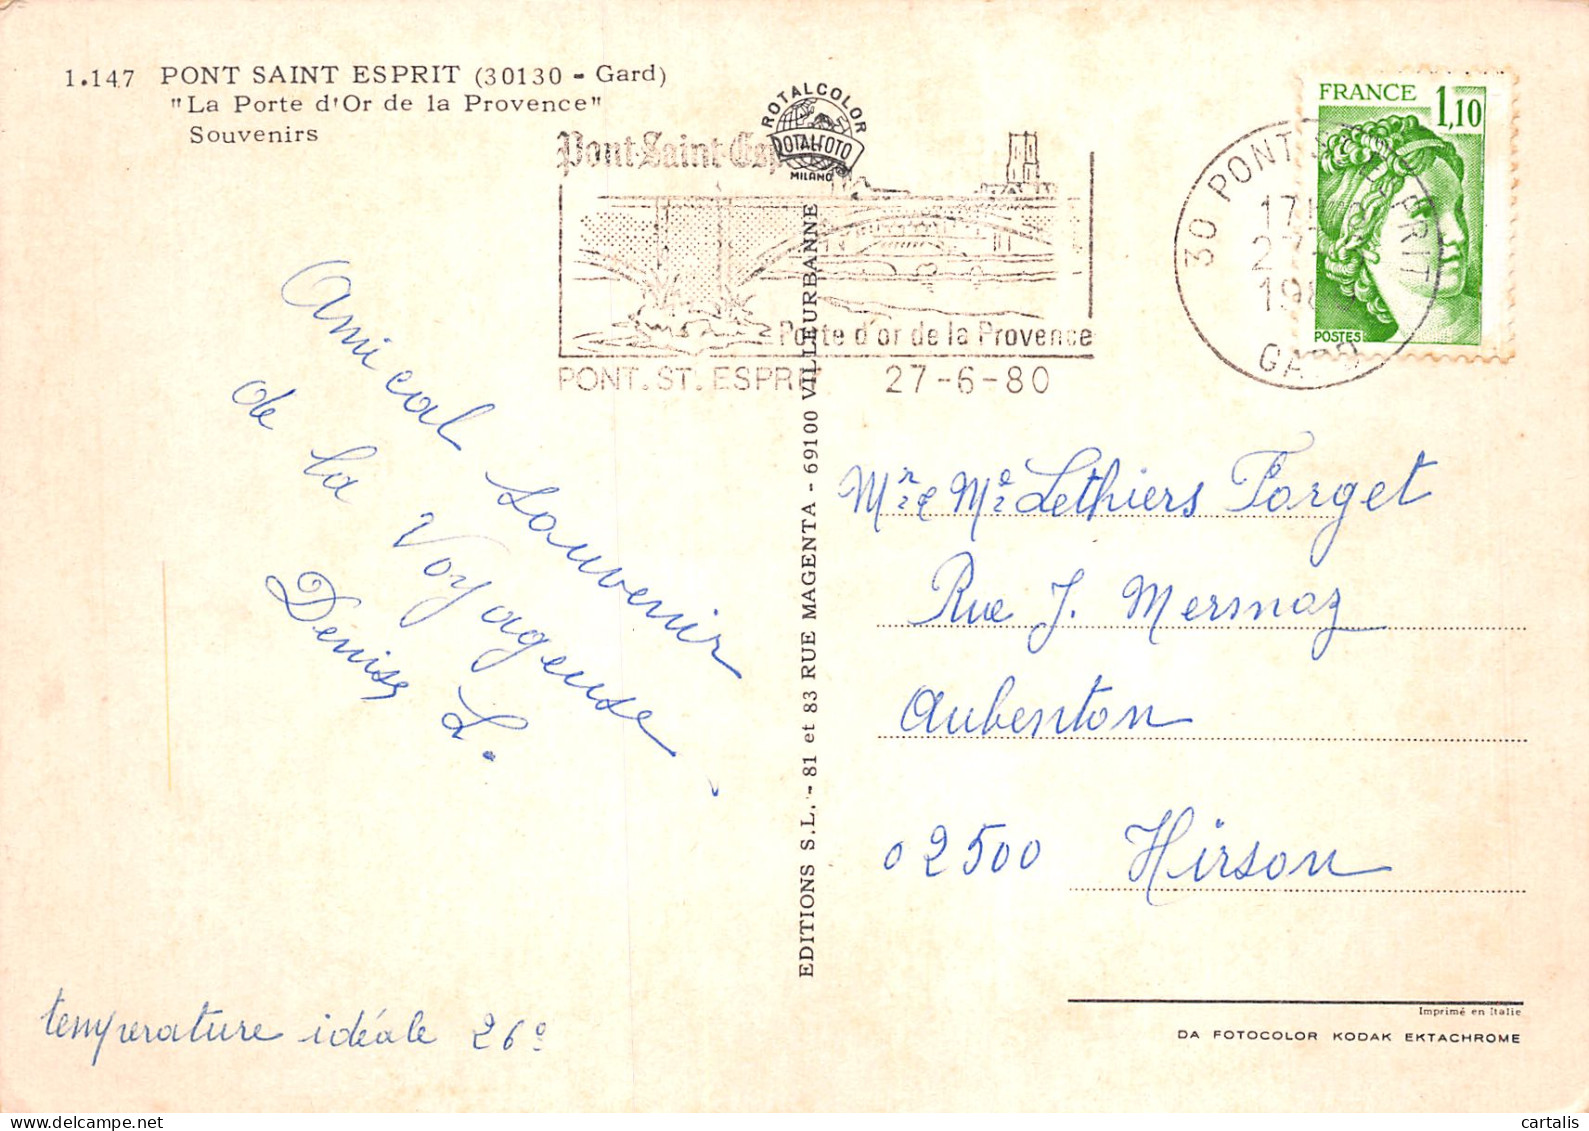 1.147 PONT SAINT ESPRIT (30130 - Gard)
"La Porte d'Or de la Provence"
Souvenirs
ROTALCOLOR
ROTALFOTO
MILANO
Pont-Saint-Esp
Porte d'or de la Provence
PONT. ST. ESPRIT 27-6-80
FRANCE 1,10
POSTES
30 PONT ST ESPRIT
17H
27
198
GARD
Amical souvenir
de la Voyageuse
Denise L.
température idéale 26°
EDITIONS S.L. - 81 et 83 RUE MAGENTA - 69100 VILLEURBANNE
Mr & Me Lethiers Forget
Rue J. Mermoz
Aubenton
02500 Hirson
Imprimé en Italie
DA FOTOCOLOR KODAK EKTACHROME
cartalis